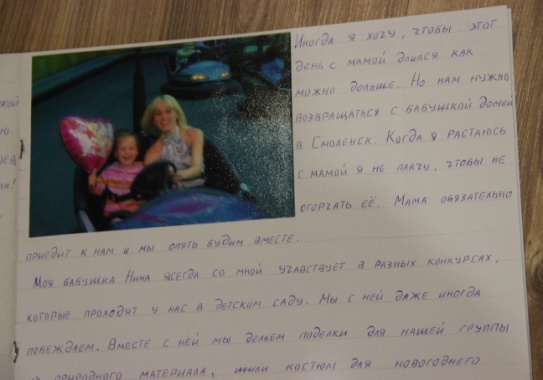 Иногда я хочу, чтобы этот
день с мамой длился как
можно дольше. Но нам нужно
возвращаться с бабушкой домой
в Смоленск. Когда я растаюсь
с мамой я не плачу, чтобы не
огорчать её. Мама обязательно
приедит к нам и мы опять будим вместе.
Моя бабушка Нина всегда со мной учавствует в разных конкурсах,
которые проходят у нас в детском саду. Мы с ней даже иногда
побеждаем. Вместе с ней мы делаем поделки для нашей группы
природного материала, шили костюм для новогоднего